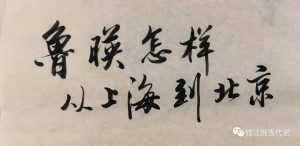 魯暎怎样
从上海到北京
钱江说当代史